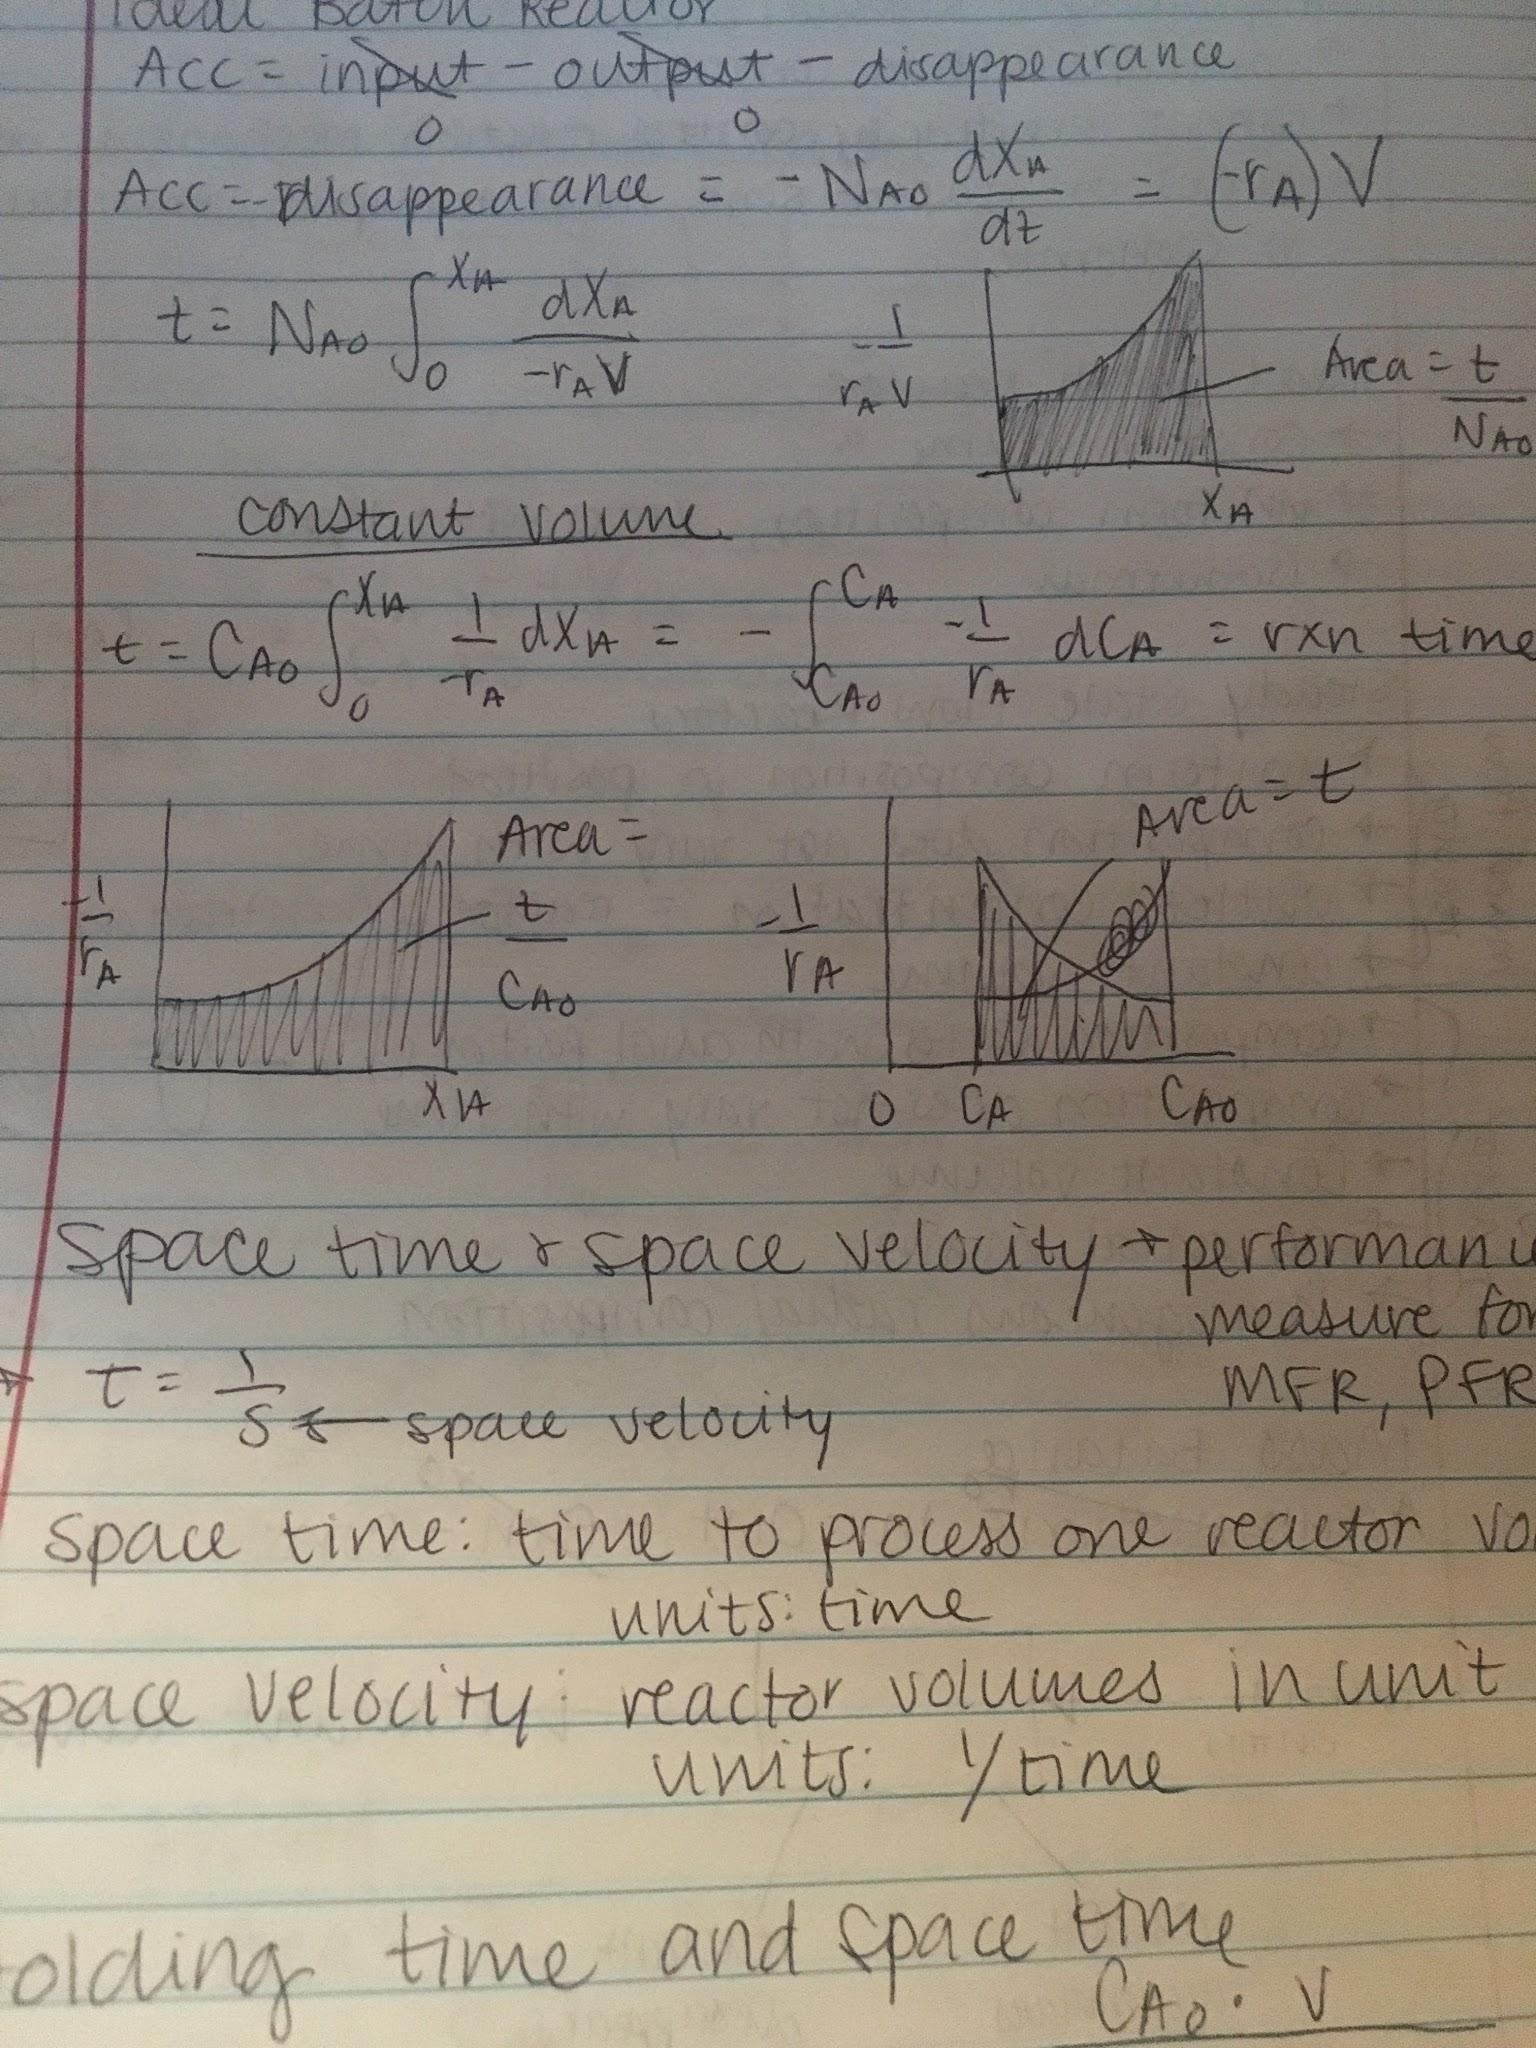 Ideal Batch Reactor
Acc = input - output - disappearance
0 0
Acc = - disappearance = - NA0 dXA/dt = (-rA) V
t = NA0 ∫0^XA dXA / -rA V
-1/rA V
Area = t/NA0
XA
constant volume
t = CA0 ∫0^XA 1/-rA dXA = - ∫CA0^CA -1/rA dCA = rxn time
-1/rA
Area = t/CA0
XA
-1/rA
Area = t
0 CA CA0
space time & space velocity → performanc
measure for
MFR, PFR
τ = 1/s ← space velocity
space time: time to process one reactor vo
units: time
space velocity: reactor volumes in unit
units: 1/time
olding time and space time
CA0 · V